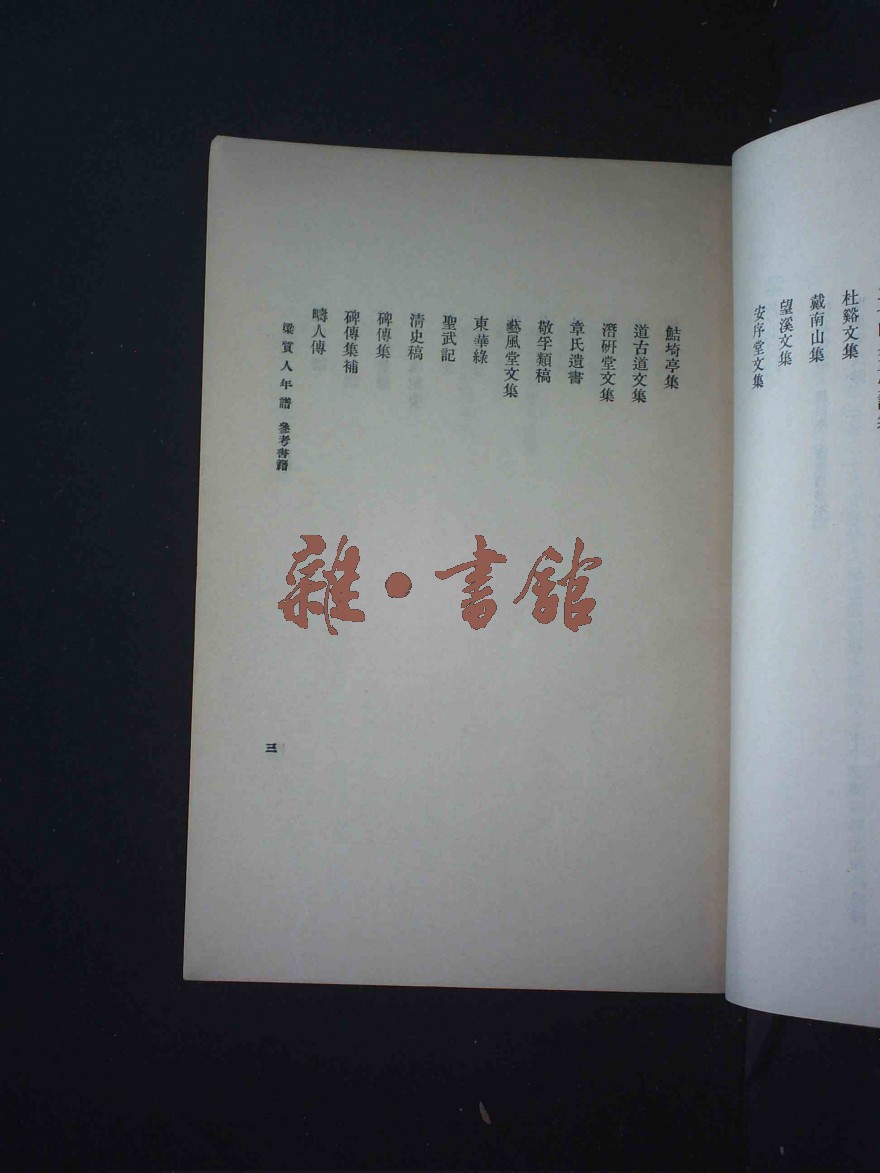 杜谿文集
戴南山集
望溪文集
安序堂文集
鮚埼亭集
道古道文集
潛研堂文集
章氏遺書
敬孚類稿
藝風堂文集
東華綠
聖武記
清史稿
碑傳集
碑傳集補
疇人傳
梁質人年譜 參考書籍
三
雜·書館